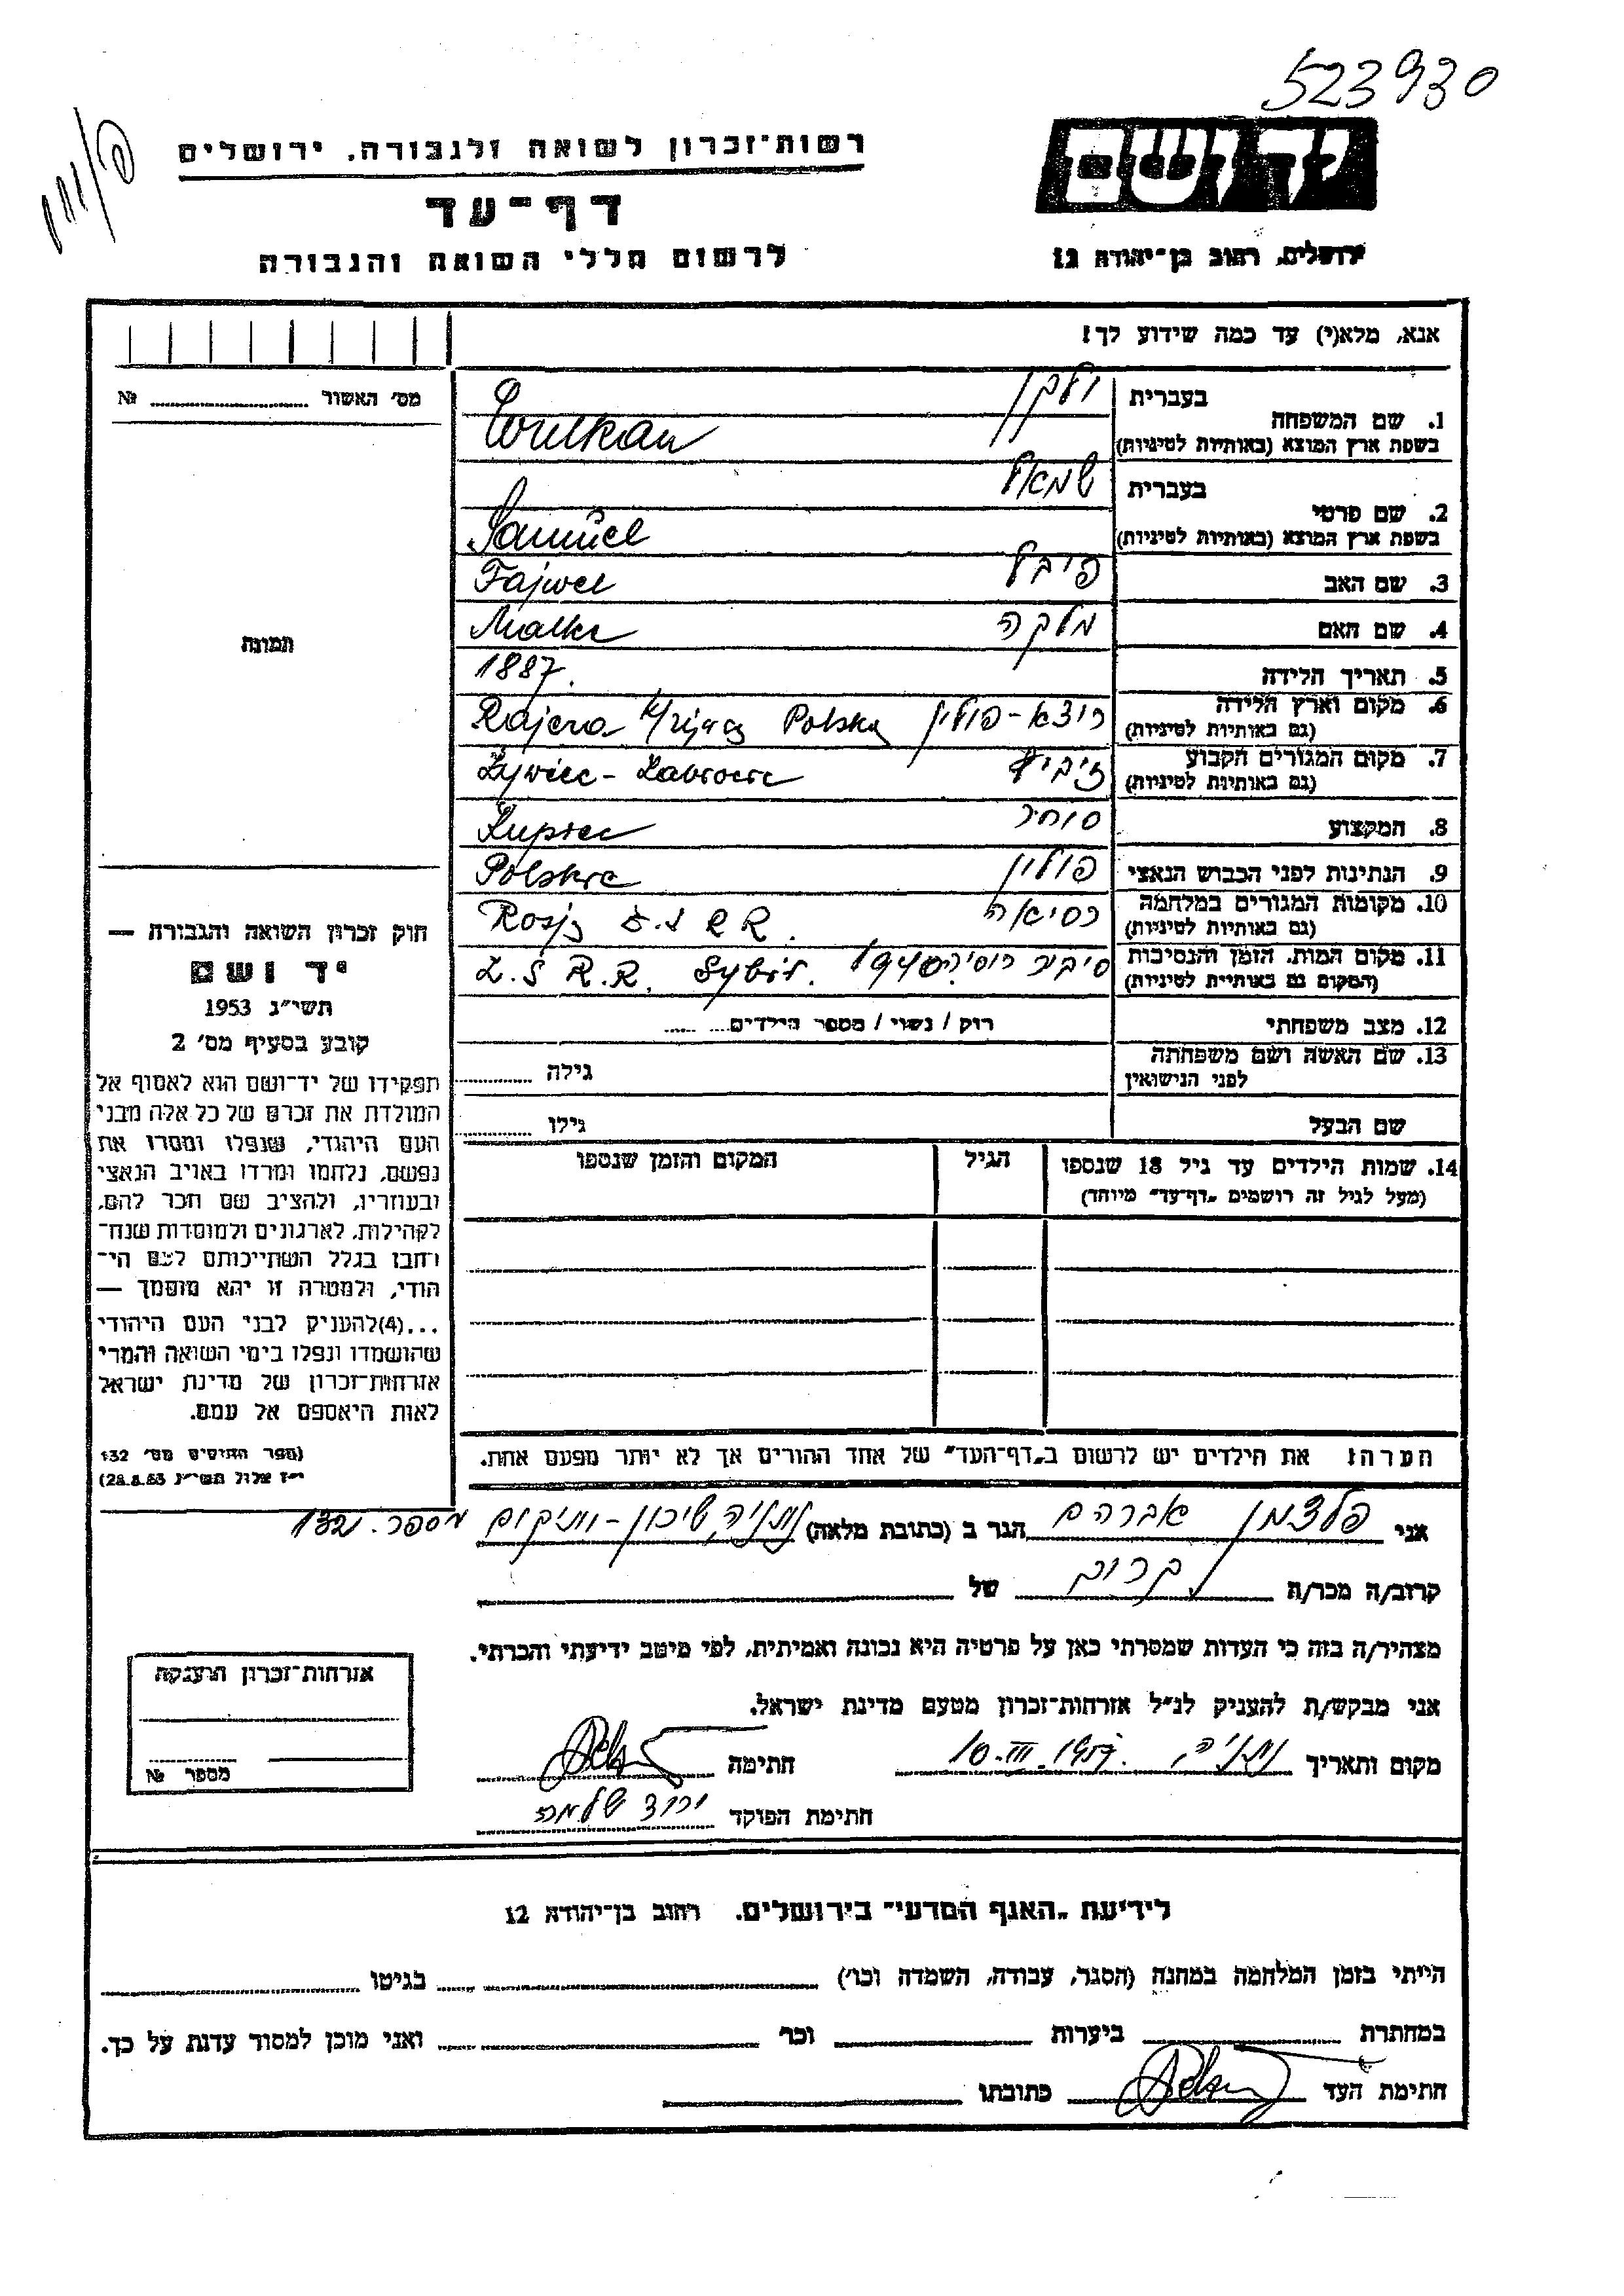 523930
רשות־זכרון לשואה ולגבורה, ירושלים
יד ושם
דף־עד
לרשום חללי השואה והגבורה
ירושלים, רחוב בן־יהודה 12
אנא, מלא(י) עד כמה שידוע לך!
מס׳ האשור № 
1. שם המשפחה
בעברית ולקן
בשפת ארץ המוצא (באותיות לטיניות) Wulkan
2. שם פרטי
בעברית שמואל
בשפת ארץ המוצא (באותיות לטיניות) Samuel
3. שם האב פיבל Fajwel
4. שם האם מלכה Malka
תמונה
5. תאריך הלידה 1887.
6. מקום וארץ הלידה (גם באותיות לטיניות) פולין Rajcza Polska
7. מקום המגורים הקבוע (גם באותיות לטיניות) Żywiec - Zabłocie
8. המקצוע סוחר Kupiec
9. הנתינות לפני הכבוש הנאצי פולין Polska
10. מקומות המגורים במלחמה (גם באותיות לטיניות) רסיאה Rosja
11. מקום המות, הזמן והנסיבות (המקום גם באותיות לטיניות) סיביר רוסיה 1940 Z.S.R.R. Sybir.
12. מצב משפחתי רוק / נשוי / מספר הילדים
13. שם האשה ושם משפחתה לפני הנישואין גילה
שם הבעל גילו
14. שמות הילדים עד גיל 18 שנספו הגיל המקום והזמן שנספו
(מעל לגיל זה רושמים "דף־עד" מיוחד)
חוק זכרון השואה והגבורה —
יד ושם
תשי״ג 1953
קובע בסעיף מס׳ 2
תפקידו של יד־ושם הוא לאסוף אל
המולדת את זכרם של כל אלה מבני
העם היהודי, שנפלו ומסרו את
נפשם, נלחמו ומרדו באויב הנאצי
ובעוזריו, ולהציב שם וזכר להם,
לקהילות, לארגונים ולמוסדות שנח־
רבו בגלל השתייכותם לעם הי־
הודי, ולמטרה זו יהא מוסמך —
...(4)להעניק לבני העם היהודי
שהושמדו ונפלו בימי השואה והמרי
אזרחות־זכרון של מדינת ישראל
לאות היאספם אל עמם.
(ספר החוקים מס׳ 132
י״ז אלול תשי״ג 28.8.53)
הערה: את הילדים יש לרשום ב"דף־העד" של אחד ההורים אך לא יותר מפעם אחת.
אני פלצמן אברהם הגר ב (כתובת מלאה) נתניה, שיכון-ותיקים מספר
קרוב/ה מכר/ה קרוב של
מצהיר/ה בזה כי העדות שמסרתי כאן על פרטיה היא נכונה ואמיתית, לפי מיטב ידיעתי והכרתי.
אני מבקש/ת להעניק לנ״ל אזרחות־זכרון מטעם מדינת ישראל.
מקום ותאריך נתניה, 10.III.1957. חתימה
חתימת הפוקד
אזרחות־זכרון הוענקה
מספר №
לידיעת "האגף המדעי" בירושלים. רחוב בן־יהודה 12
הייתי בזמן המלחמה במחנה (הסגר, עבודה, השמדה וכו׳) בגיטו
במחתרת ביערות וכו׳ ואני מוכן למסור עדות על כך.
חתימת העד כתובתו